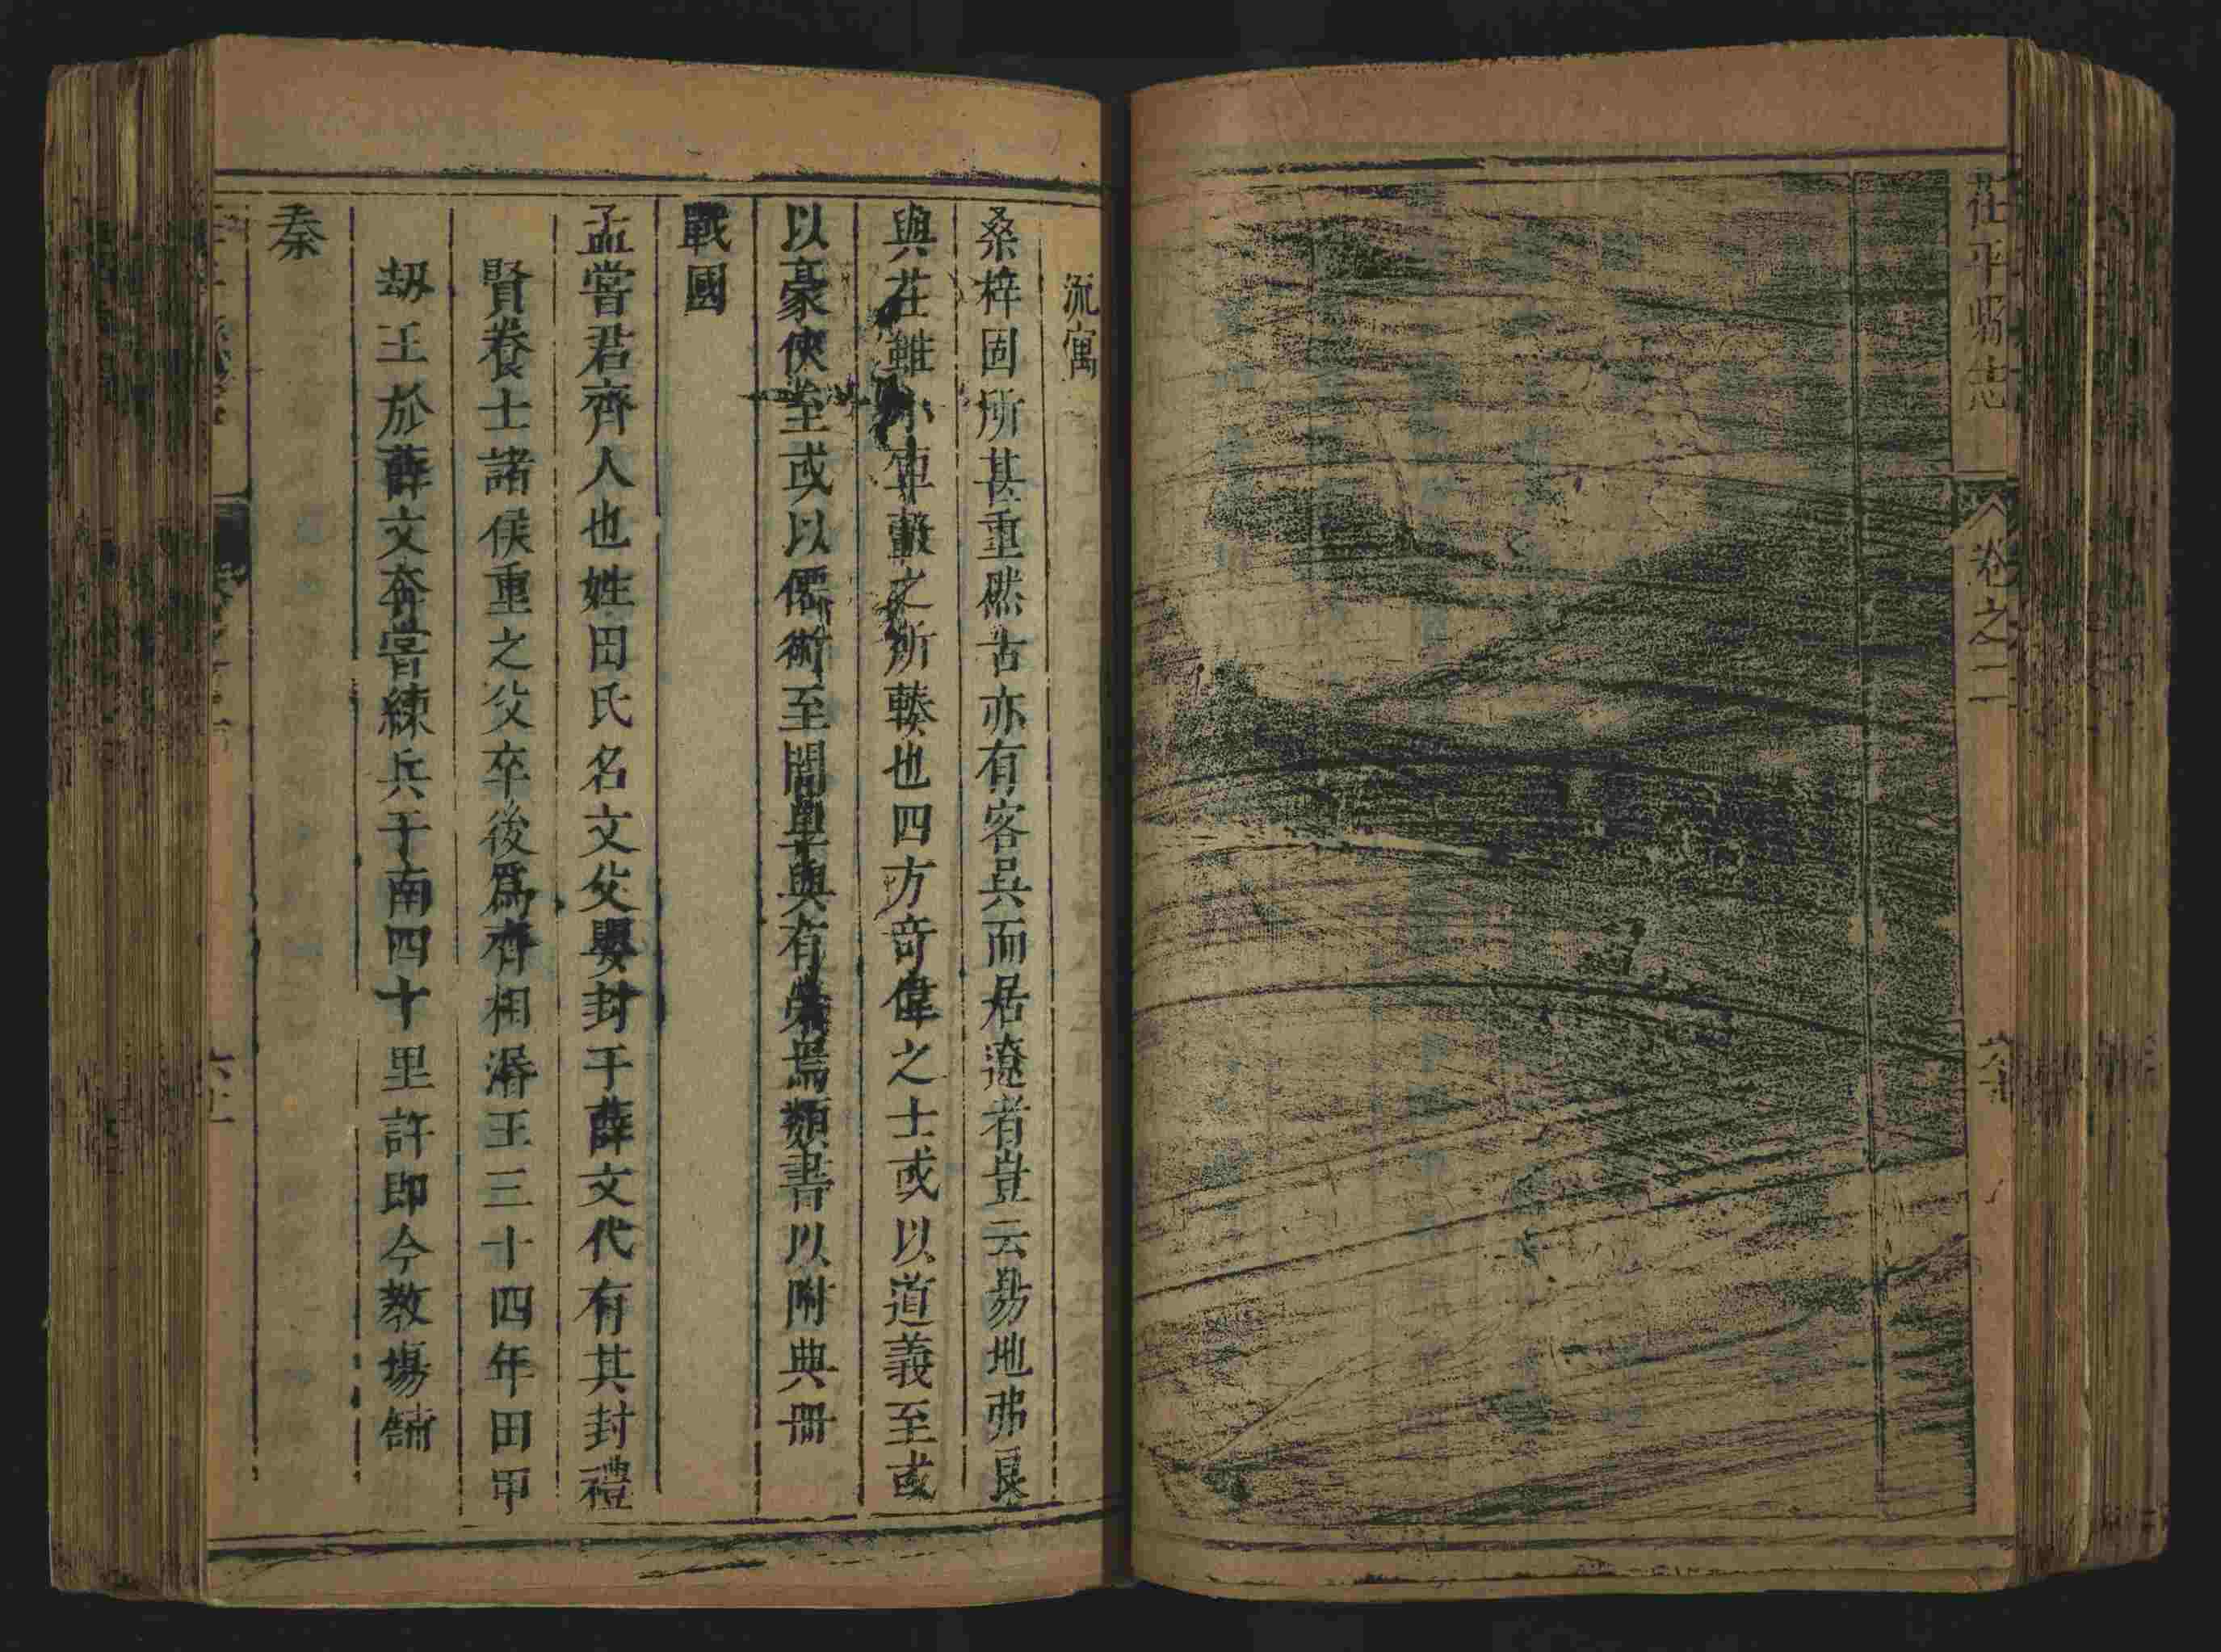 茌平縣志
卷之二
流寓
桑梓固所甚重然古亦有客吳而居遼者豈云易地弗良
與茌雖小車轂之所輳也四方奇偉之士或以道義至或
以豪俠至或以儒術至閭里與有榮焉類書以附典冊
戰國
孟嘗君齊人也姓田氏名文父嬰封于薛文代有其封禮
賢養士諸侯重之父卒後爲齊相湣王三十四年田甲
劫王於薛文奔嘗練兵于南四十里許即今教場鋪
秦